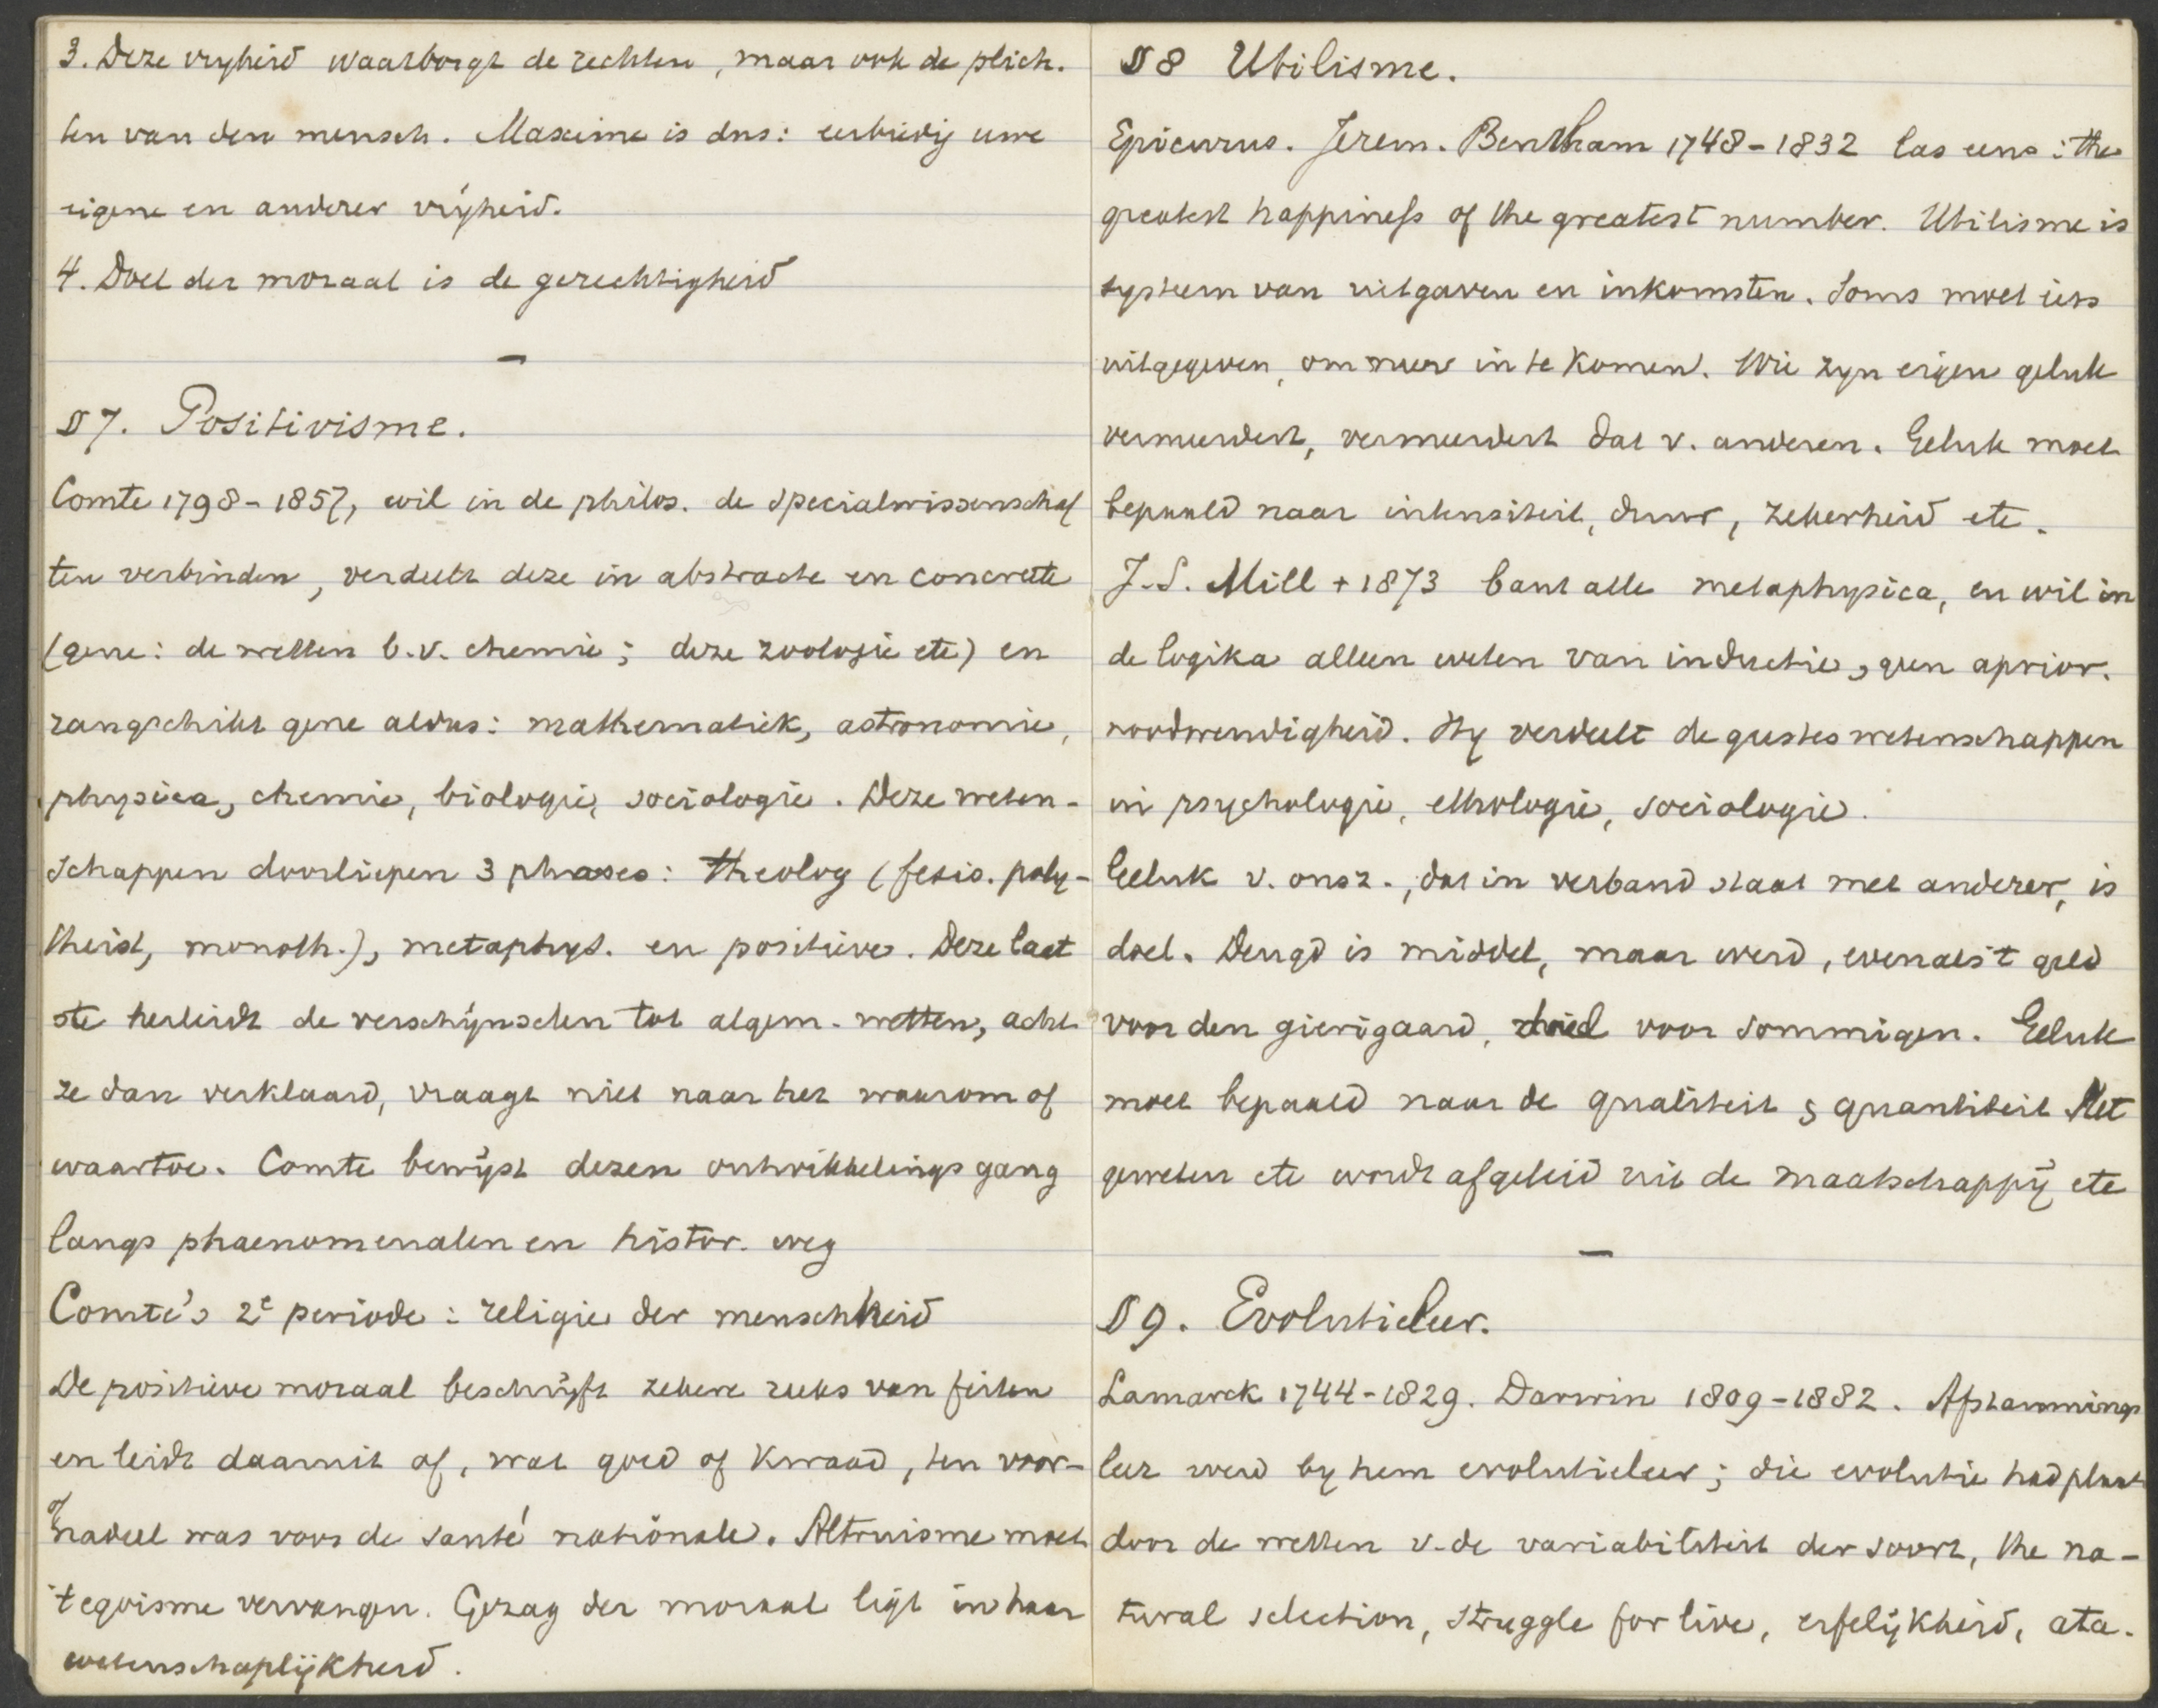 3. Deze vryheid waarborgt de rechten, maar ook de plich.
ten van den mensch. Maxime is dus: eerbiedig uwe
eigene en anderer vrijheid.
4. Doel der moraal is de gerechtigheid
—
§ 7. Positivisme.
Comte 1798-1857, wil in de philos. de specialwissenschaf
ten verbinden, verdeelt deze in abstracte en concrete
(gene: de wetten b.v. chemie; deze zoologie etc) en
rangschikt gene aldus: mathematiek, astronomie,
physica, chemie, biologie, sociologie. Deze weten-
schappen doorliepen 3 phases: theolog (fetis. poly-
theist, monoth.), metaphys. en positieve. Deze laat
ste herleidt de verschijnselen tot algem. wetten, acht
ze dan verklaard, vraagt niet naar het waarom of
waartoe. Comte bewijst dezen ontwikkelingsgang
langs phaenomenalen en histor. weg
Comte's 2e periode: religie der menschheid
De positieve moraal beschrijft zekere reeks van feiten
en leidt daaruit af, wat goed of kwaad, ten voor-
of nadeel was voor de santé nationale. Altruisme moet
't egoisme vervangen. Gezag der moraal ligt in haar
wetenschaplijkheid.
§ 8 Utilisme.
Epicurus. Jerem. Bentham 1748-1832 las eens: the
greatest happiness of the greatest number. Utilisme is
systeem van uitgaven en inkomsten. Soms moet iets
uitgegeven, om meer in te komen. Wie zyn eigen geluk
vermeerdert, vermeerdert dat v. anderen. Geluk moet
bepaald naar intensiteit, duur, zekerheid etc.
J.S. Mill + 1873 bant alle metaphysica, en wil in
de logika alleen weten van inductie, geen aprior.
noodwendigheid. Hy verdeelt de geesteswetenschappen
in psychologie, ethologie, sociologie.
Geluk v. onsz., dat in verband staat met anderer, is
doel. Deugd is middel, maar werd, evenals 't geld
voor den gierigaard, doel voor sommigen. Geluk
moet bepaald naar de qualiteit & quantiteit Het
geweten etc wordt afgeleid uit de maatschappij etc
—
§ 9. Evolutieleer.
Lamarck 1744-1829. Darwin 1809-1882. Afstammings
leer werd by hem evolutieleer; die evolutie had plaats
door de wetten v. de variabiliteit der soort, the na-
tural selection, struggle for live, erfelijkheid, ata-